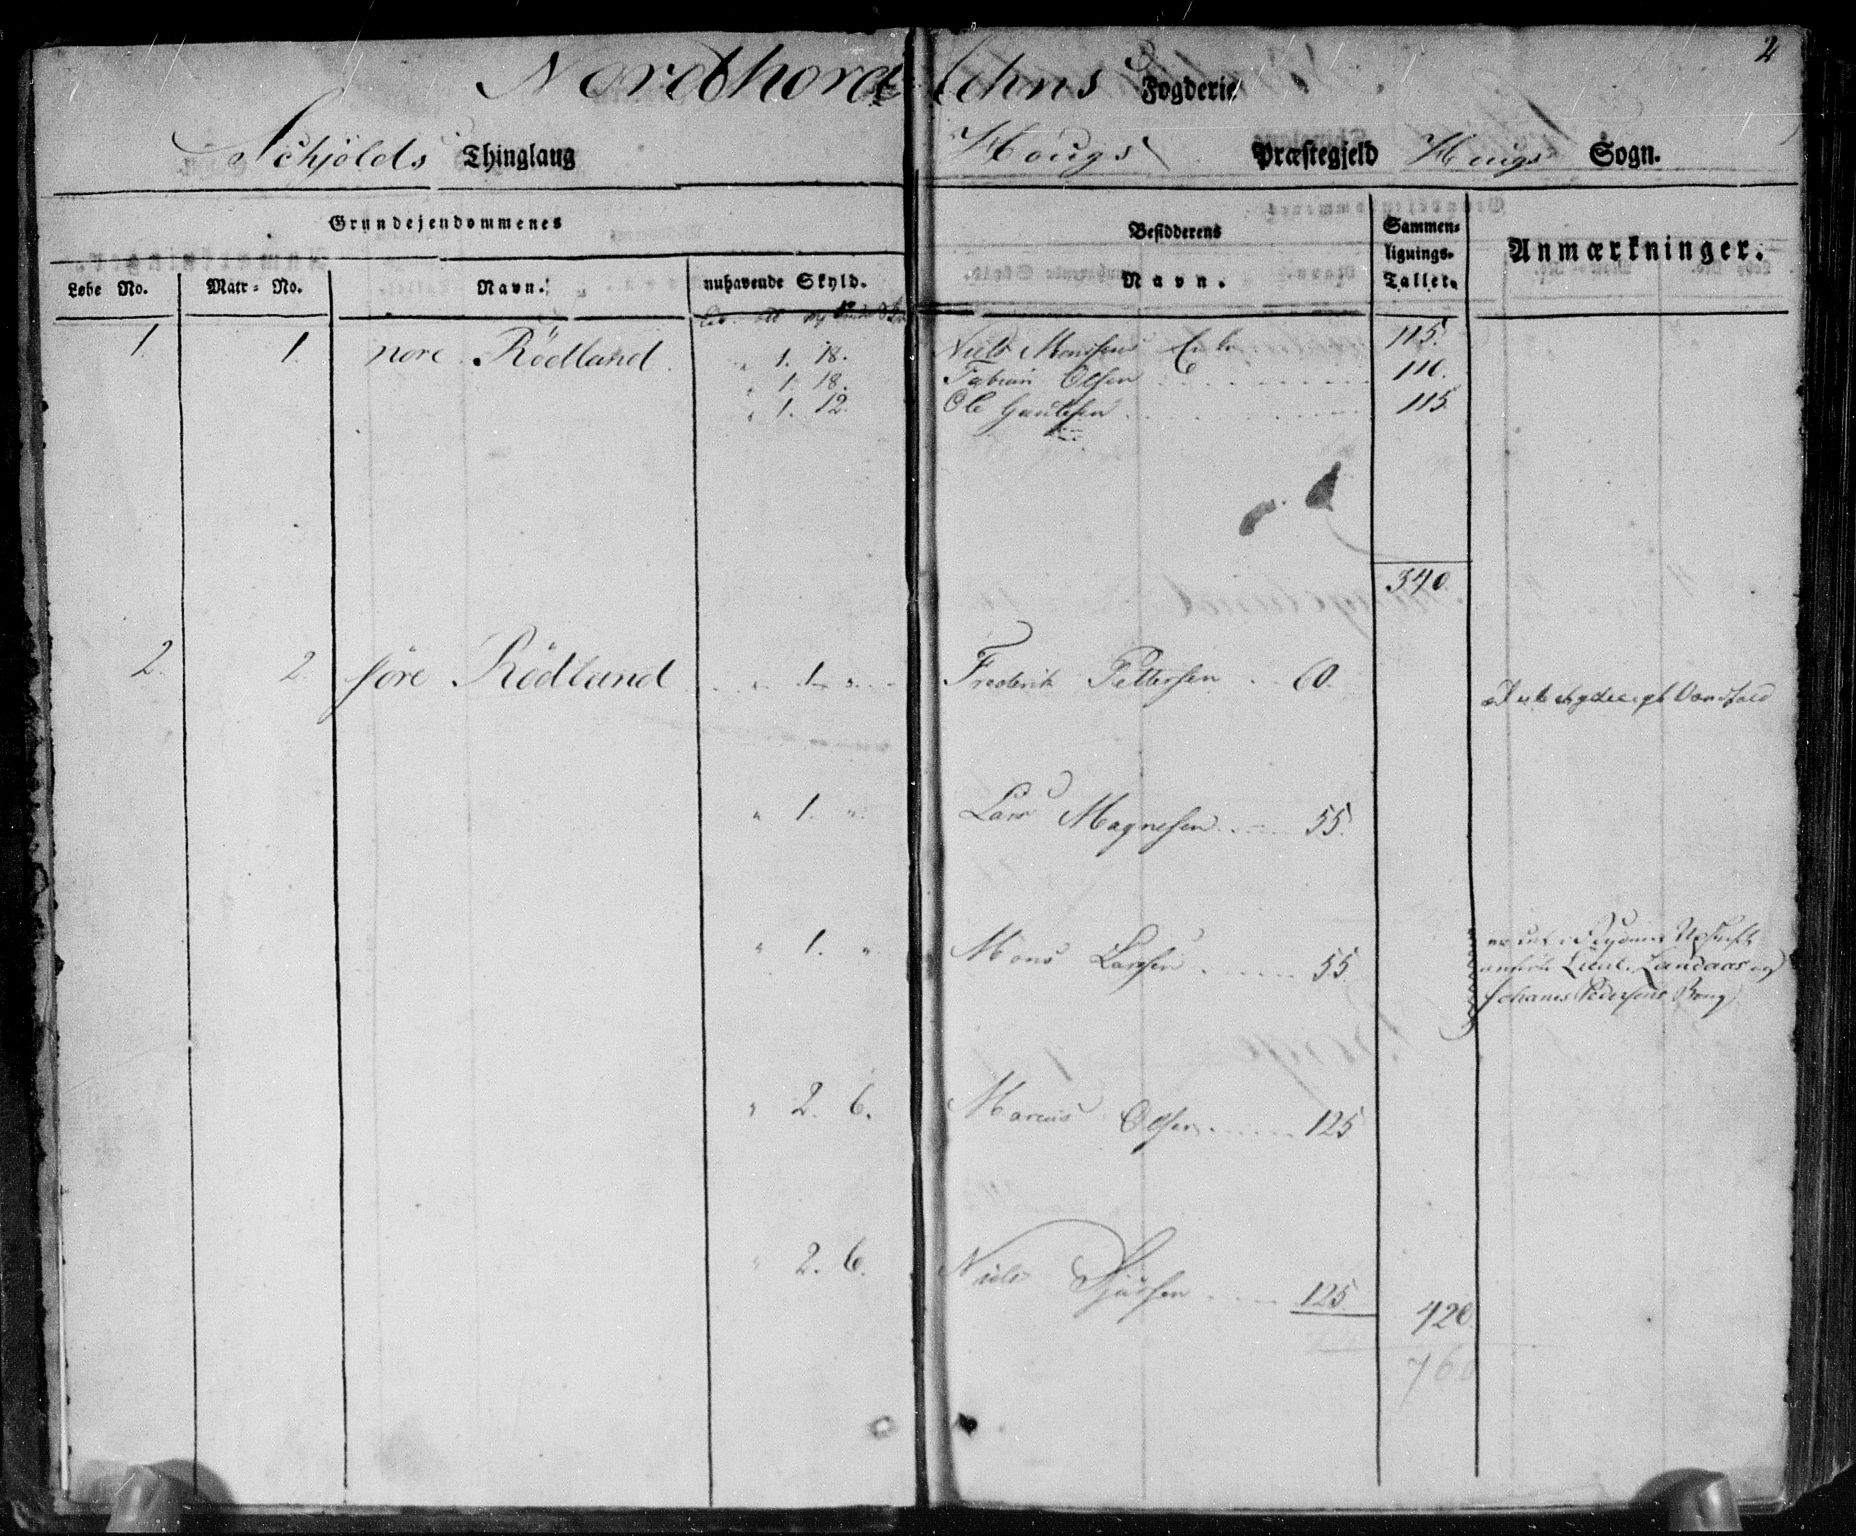 2
Nordhordlehns Fogderie
Schjolds Thinglaug Hougs Præstegjeld Hougs Sogn.
Grundejendommenes Besidderens Sammen-
lignings-
Tallet. Anmærkninger.
Løbe No. Matr-No. Navn. nuhavende Skyld. Navn.
1. 1. nore Rödland. " 1. 18. Niels Monssen 115.
" 1. 18. Fabian Olsen 110.
" 1. 12. Ole Gautesen 115.
340.
2. 2. söre Rödland " 1. " Frederik Pettersen 60. Vandfald
" 1. " Lars Magnesen 55.
" 1. " Mons Larssen 55.
Lieut. Landaas og
Johanes Pedersens Brug
" 2. 6. Marcus Olsen 125
" 2. 6. Niels 125. 420.
760